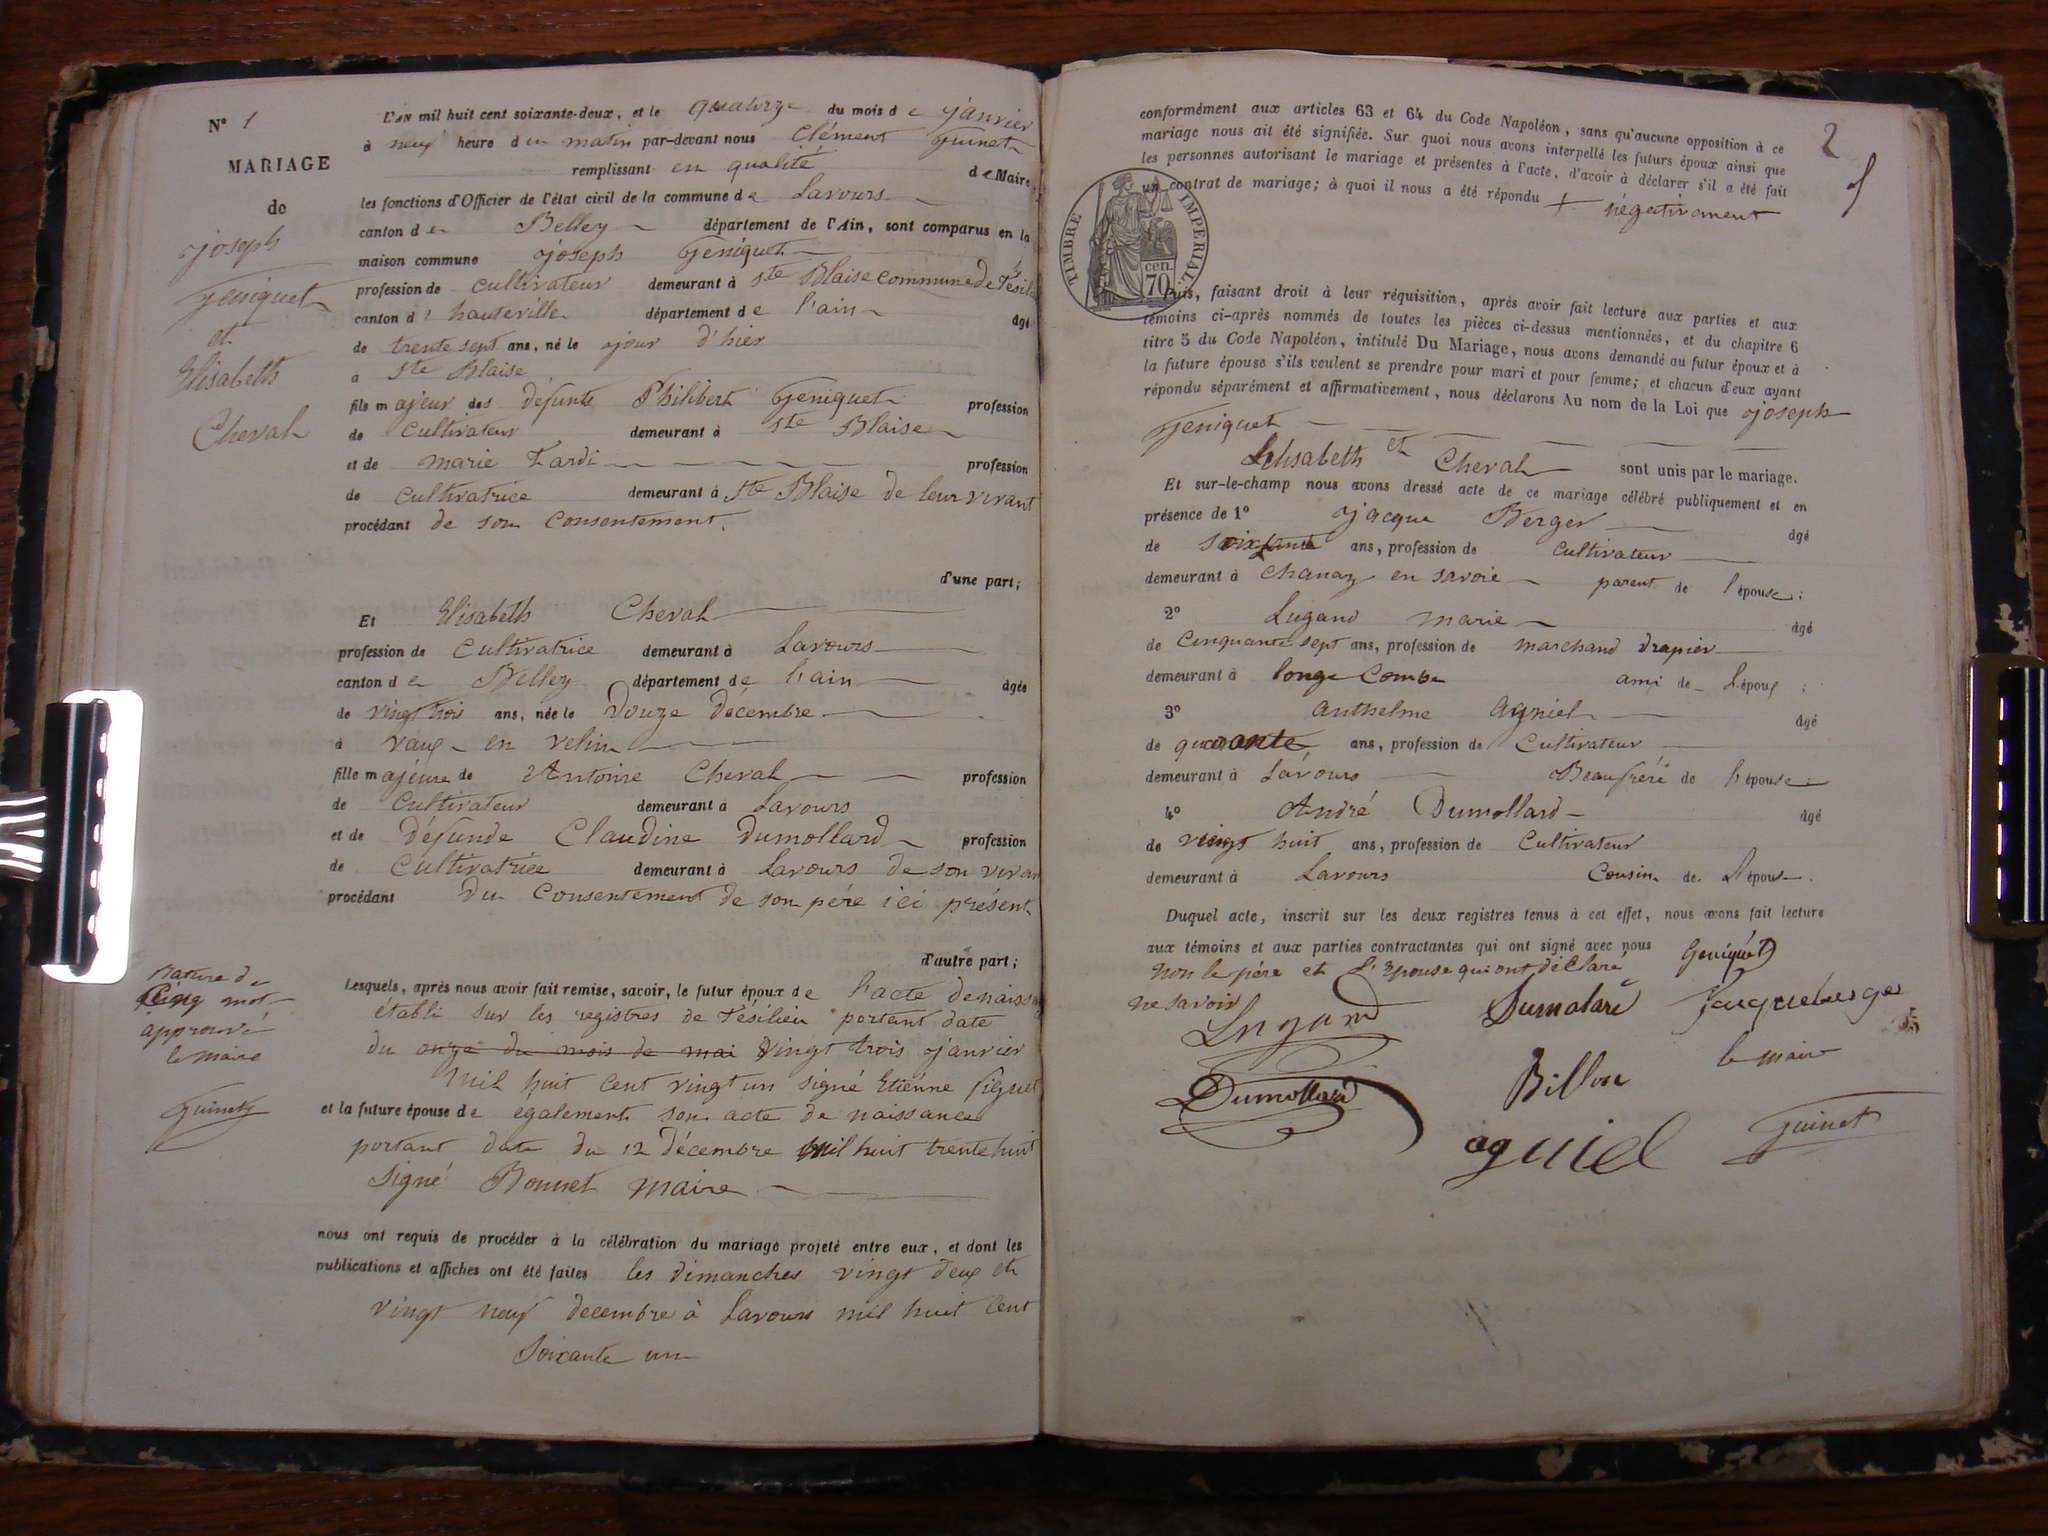 N° 1
MARIAGE
de
joseph
Geniquet
et
Elisabeth
Cheval
L'AN mil huit cent soixante-deux, et le quatorze du mois de janvier
à neuf heure du matin par-devant nous Clément Guinet
remplissant en qualité de Maire
les fonctions d'Officier de l'état civil de la commune de Lavours
canton de Belley département de l'Ain, sont comparus en la
maison commune joseph Geniquet
profession de cultivateur demeurant à Ste Blaise commune de
canton d' hauteville département de l'ain âgé
de trente sept ans, né le jour d'hier
à Ste Blaise
fils majeur des défunts Philibert Geniquet profession
de Cultivateur demeurant à Ste Blaise
et de marie Tardi profession
de Cultivatrice demeurant à Ste Blaise de leur vivant
procédant de son Consentement.
d'une part;
Et Elisabeth Cheval
profession de Cultivatrice demeurant à Lavours
canton de Belley département de l'ain âgée
de vingt trois ans, née le Douze décembre
à vaux en velin
fille majeure de Antoine Cheval profession
de Cultivateur demeurant à Lavours
et de Défunde Claudine Dumollard profession
de Cultivatrice demeurant à Lavours de son vivan
procédant Du Consentement de son père ici présent
d'autre part;
Rature de
Cinq mot
approuvé
le maire
Guinet
Lesquels, après nous avoir fait remise, savoir, le futur époux de l'acte de naiss
établi sur les registres de Tésilieu portant date
du onze du mois de mai vingt trois janvier
mil huit cent vingt un signé Etienne
et la future épouse de également son acte de naissance
portant date du 12 décembre mil huit trente huit
signé Bonnet maire
nous ont requis de procéder à la célébration du mariage projeté entre eux, et dont les
publications et affiches ont été faites les dimanches vingt deux et
vingt neuf decembre à Lavours mil huit cent
soixante un
2
conformément aux articles 63 et 64 du Code Napoléon, sans qu'aucune opposition à ce
mariage nous ait été signifiée. Sur quoi nous avons interpellé les futurs époux ainsi que
les personnes autorisant le mariage et présentes à l'acte, d'avoir à déclarer s'il a été fait
un contrat de mariage; à quoi il nous a été répondu + négativement
TIMBRE IMPERIAL
70 cen.
Puis, faisant droit à leur réquisition, après avoir fait lecture aux parties et aux
témoins ci-après nommés de toutes les pièces ci-dessus mentionnées, et du chapitre 6
titre 5 du Code Napoléon, intitulé Du Mariage, nous avons demandé au futur époux et à
la future épouse s'ils veulent se prendre pour mari et pour femme; et chacun d'eux ayant
répondu séparément et affirmativement, nous déclarons Au nom de la Loi que joseph
Geniquet
et
Elisabeth Cheval sont unis par le mariage.
Et sur-le-champ nous avons dressé acte de ce mariage célébré publiquement et en
présence de 1° jacque Berger âgé
de soixante ans, profession de Cultivateur
demeurant à Chanaz en savoie parent de l'épouse;
2° Lugand marie âgé
de Cinquante sept ans, profession de marchand drapier
demeurant à longe Combe ami de l'époux;
3° anthelme agniel âgé
de quarante ans, profession de Cultivateur
demeurant à Lavours Beaufréré de l'épouse;
4° André Dumollard âgé
de vingt huit ans, profession de Cultivateur
demeurant à Lavours Cousin de l'épouse.
Duquel acte, inscrit sur les deux registres tenus à cet effet, nous avons fait lecture
aux témoins et aux parties contractantes qui ont signé avec nous Geniquet
Non le père et l'épouse qui ont déclaré
ne savoir
Lugand
Dumolard
Jacqueberger
le maire
Billon
Dumollard
Guinet
aguiel